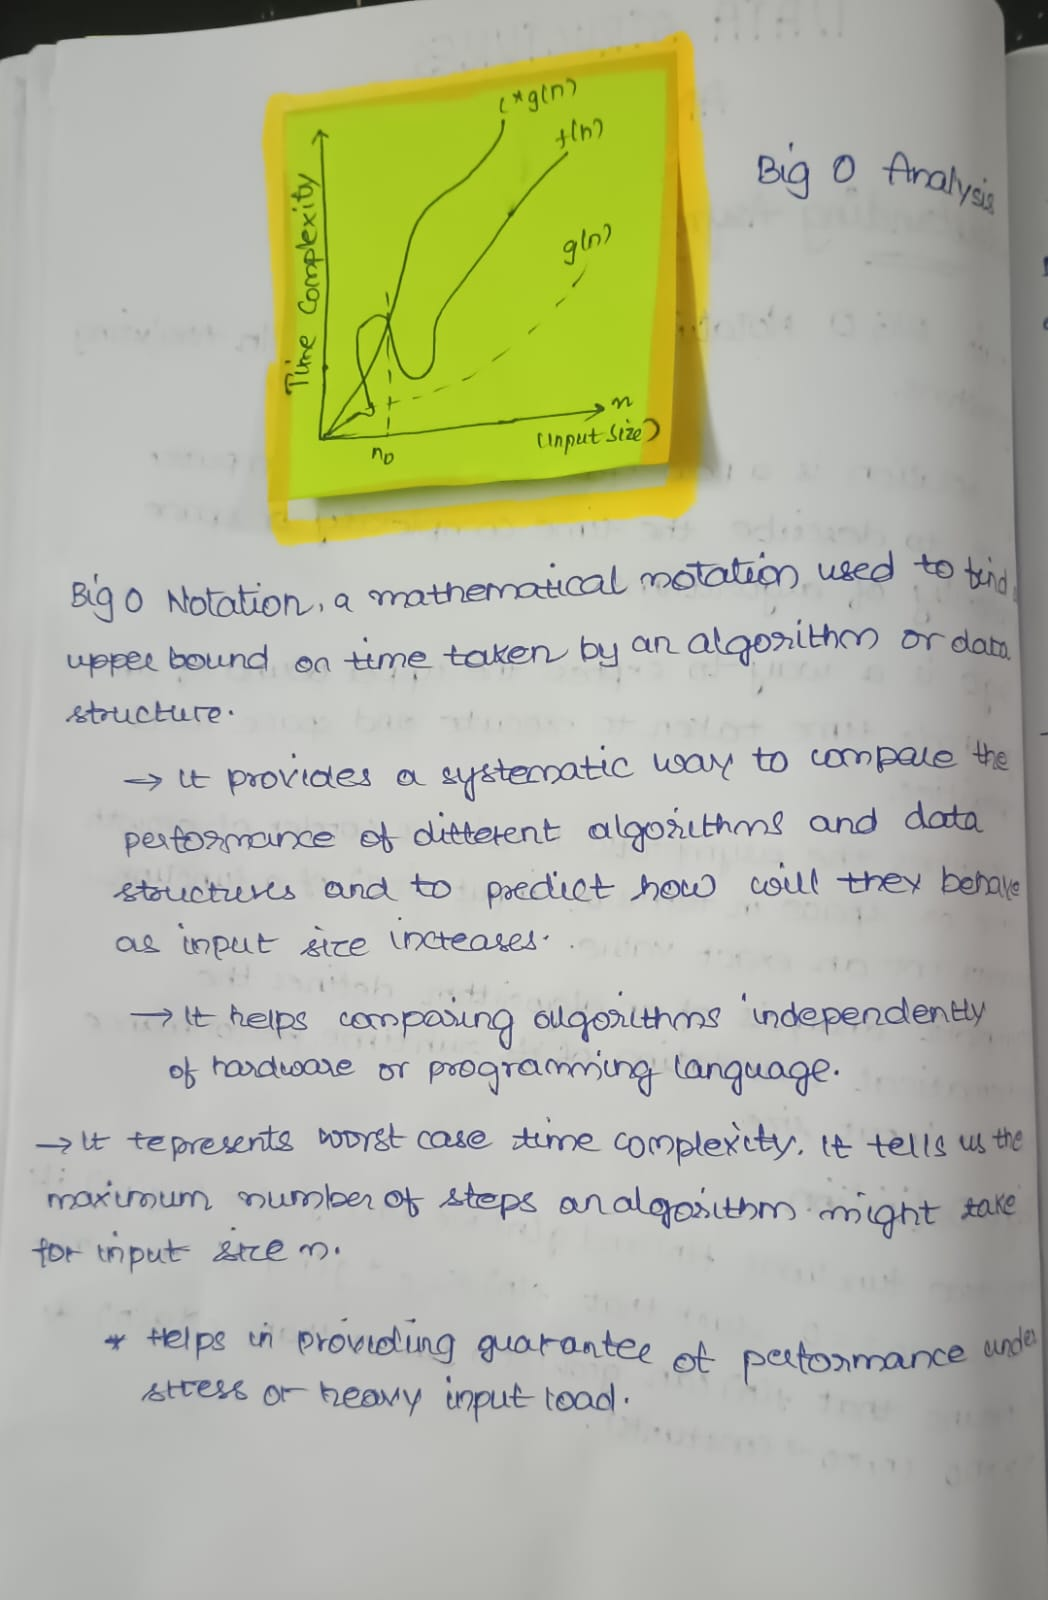 C*g(n)
f(n)
Big O Analysis
g(n)
Time Complexity
n
(Input Size)
n0
Big O Notation, a mathematical notation used to find
upper bound on time taken by an algorithm or data
structure.
→ It provides a systematic way to compare the
performance of different algorithms and data
structures and to predict how will they behave
as input size increases.
→ It helps comparing algorithms independently
of hardware or programming language.
→ It represents worst case time complexity. It tells us the
maximum number of steps an algorithm might take
for input size n.
* Helps in providing guarantee of performance under
stress or heavy input load.